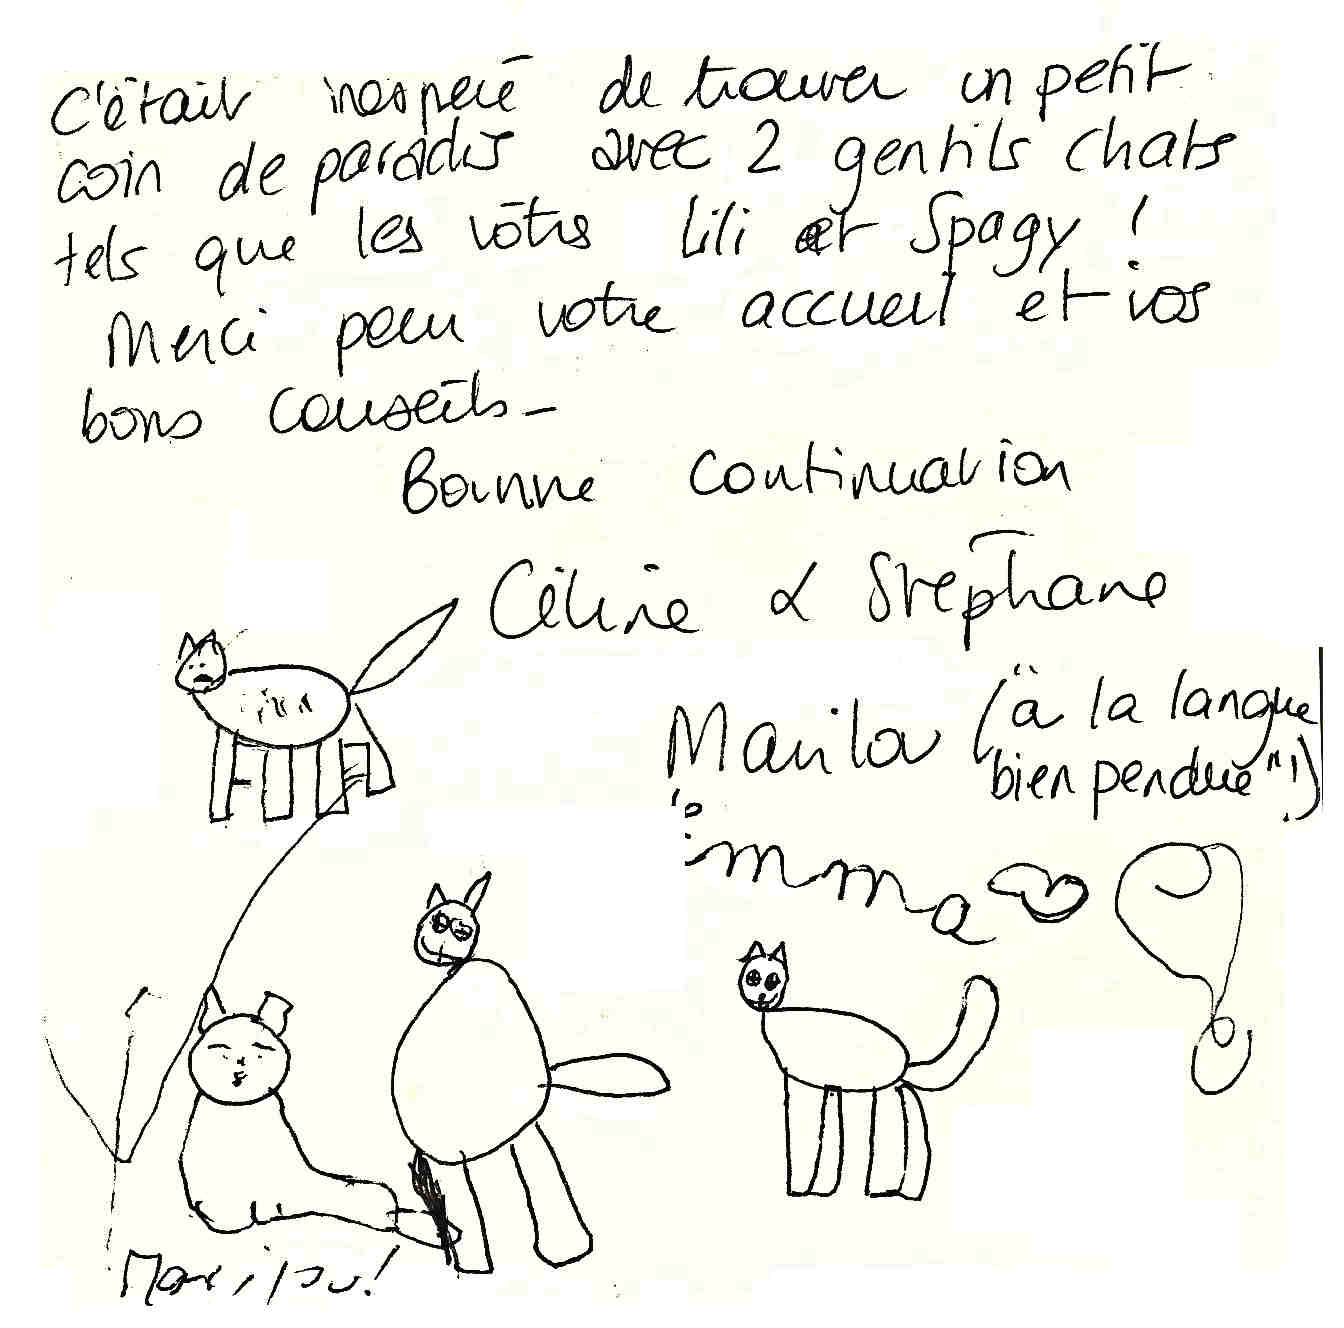 C'était inespéré de trouver un petit
coin de paradis avec 2 gentils chats
tels que les vôtres Lili et Spagy !
Merci pour votre accueil et vos
bons conseils -
Bonne continuation
Céline & Stéphane
Marilou ("à la langue
bien pendue"!)
imma
Marilou!